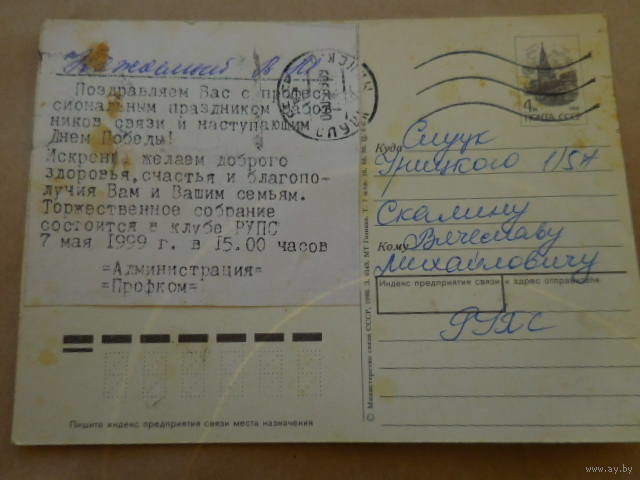 Поздравляем Вас с профес-
сиональным праздником работ-
ников связи и наступающим
Днем Победы!
Искренне желаем доброго
здоровья, счастья и благопо-
лучия Вам и Вашим семьям.
Торжественное собрание
состоится в клубе РУПС
7 мая 1999 г. в 15.00 часов
=Администрация=
=Профком=
Пишите индекс предприятия связи места назначения
4к
ПОЧТА СССР
Куда Слуцк
Урицкого
Скалину
Кому Вячеславу
Михайловичу
Индекс предприятия связи и адрес отправителя
РУПС
© Министерство связи СССР, 1988.
ay.by